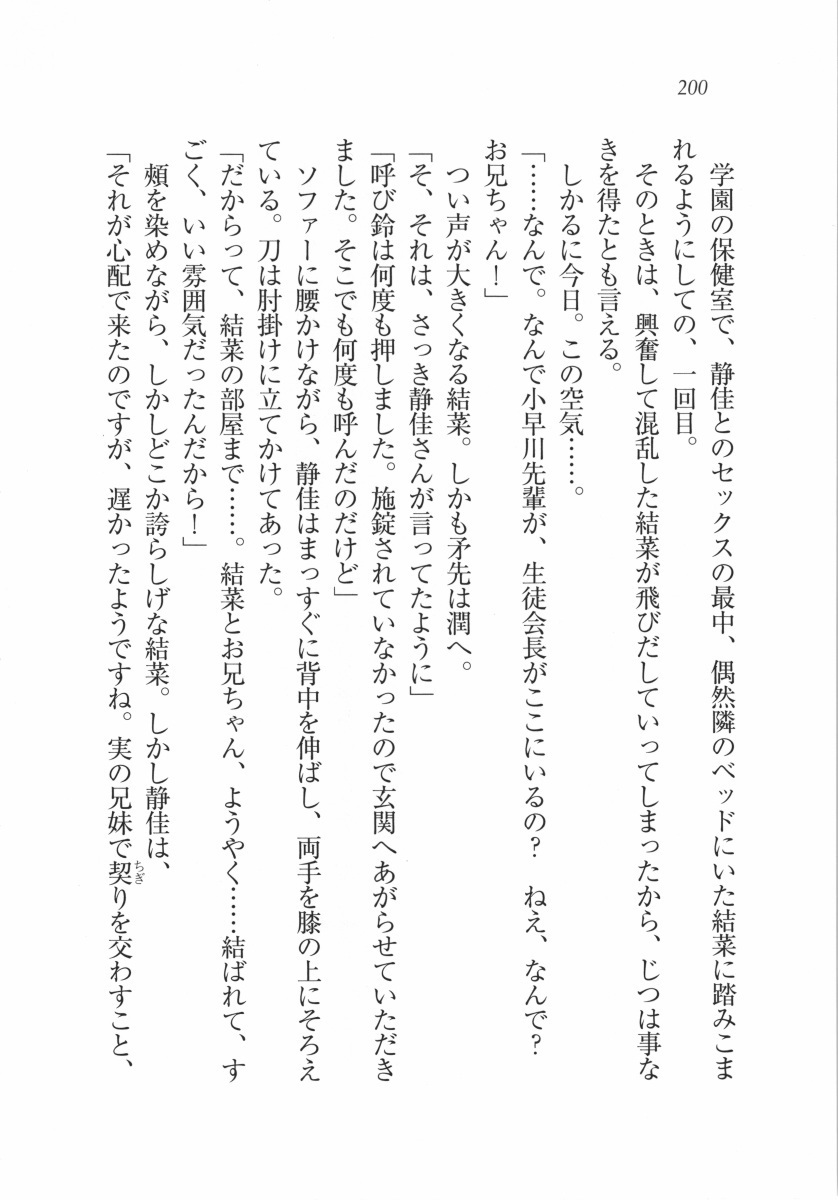 200
学園の保健室で、静佳とのセックスの最中、偶然隣のベッドにいた結菜に踏みこま
れるようにしての、一回目。
そのときは、興奮して混乱した結菜が飛びだしていってしまったから、じつは事な
きを得たとも言える。
しかるに今日。この空気……。
「……なんで。なんで小早川先輩が、生徒会長がここにいるの？　ねえ、なんで？
お兄ちゃん！」
つい声が大きくなる結菜。しかも矛先は潤へ。
「そ、それは、さっき静佳さんが言ってたように」
「呼び鈴は何度も押しました。施錠されていなかったので玄関へあがらせていただき
ました。そこでも何度も呼んだのだけど」
ソファーに腰かけながら、静佳はまっすぐに背中を伸ばし、両手を膝の上にそろえ
ている。刀は肘掛けに立てかけてあった。
「だからって、結菜の部屋まで……。結菜とお兄ちゃん、ようやく……結ばれて、す
ごく、いい雰囲気だったんだから！」
頰を染めながら、しかしどこか誇らしげな結菜。しかし静佳は、
「それが心配で来たのですが、遅かったようですね。実の兄妹で契りを交わすこと、
ちぎ